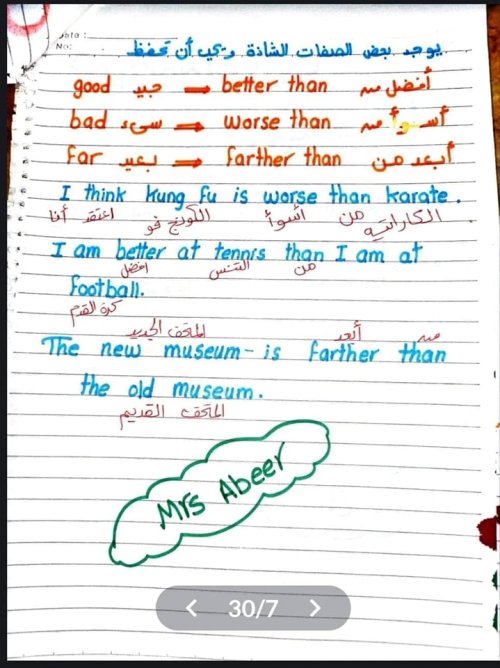 Date :
No:
يوجد بعض الصفات الشاذة ويجب أن تحفظ
good جيد → better than أفضل من
bad سيء → worse than أسوأ من
far بعيد → farther than أبعد من
I think kung fu is worse than karate.
أنا اعتقد الكونج فو أسوأ من الكاراتيه
I am better at tennis than I am at
افضل التنس من
football.
كرة القدم
المتحف الجديد أبعد من
The new museum - is farther than
the old museum.
المتحف القديم
Mrs Abeer
30/7